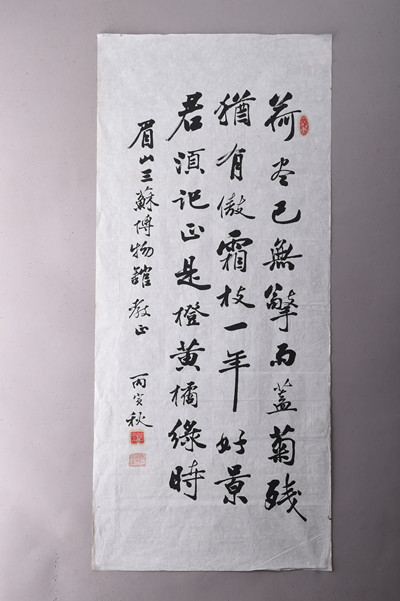 荷尽已無擎雨蓋菊残
猶有傲霜枝一年好景
君須記正是橙黄橘緑時
眉山三蘇博物館教正
丙寅秋